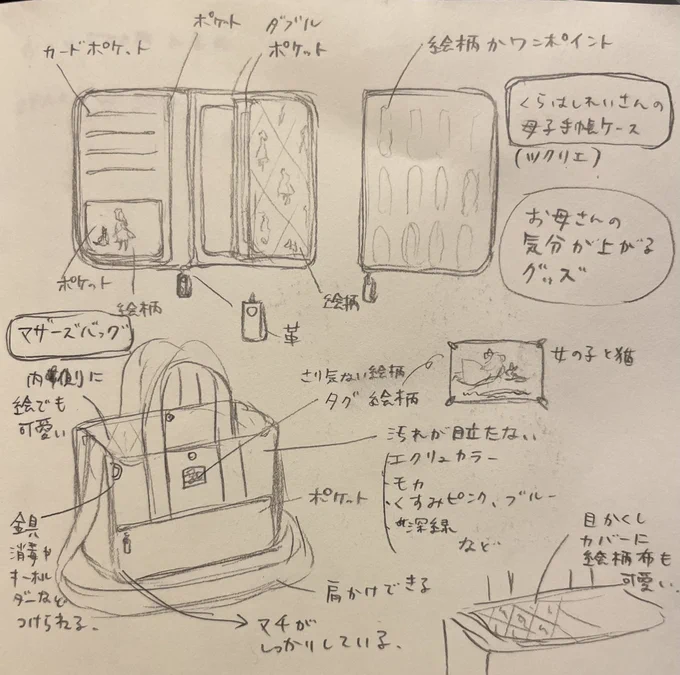 カードポケット
ポケット
ダブル
ポケット
絵柄かワンポイント
くらはしれいさんの
母子手帳ケース
(ツクリエ)
お母さんの
気分が上がる
グッズ
ポケット
絵柄
革
絵柄
マザーズバッグ
内側に
絵でも
可愛い
さり気ない絵柄
タグ 絵柄
女の子と猫
汚れが目立たない
エクリュカラー
・モカ
・くすみピンク、ブルー
・深緑
など…
ポケット
金具
消毒や
キーホル
ダーなど
つけられる。
肩かけできる
マチが
しっかりしている。
目かくし
カバーに
絵柄布も
可愛い。